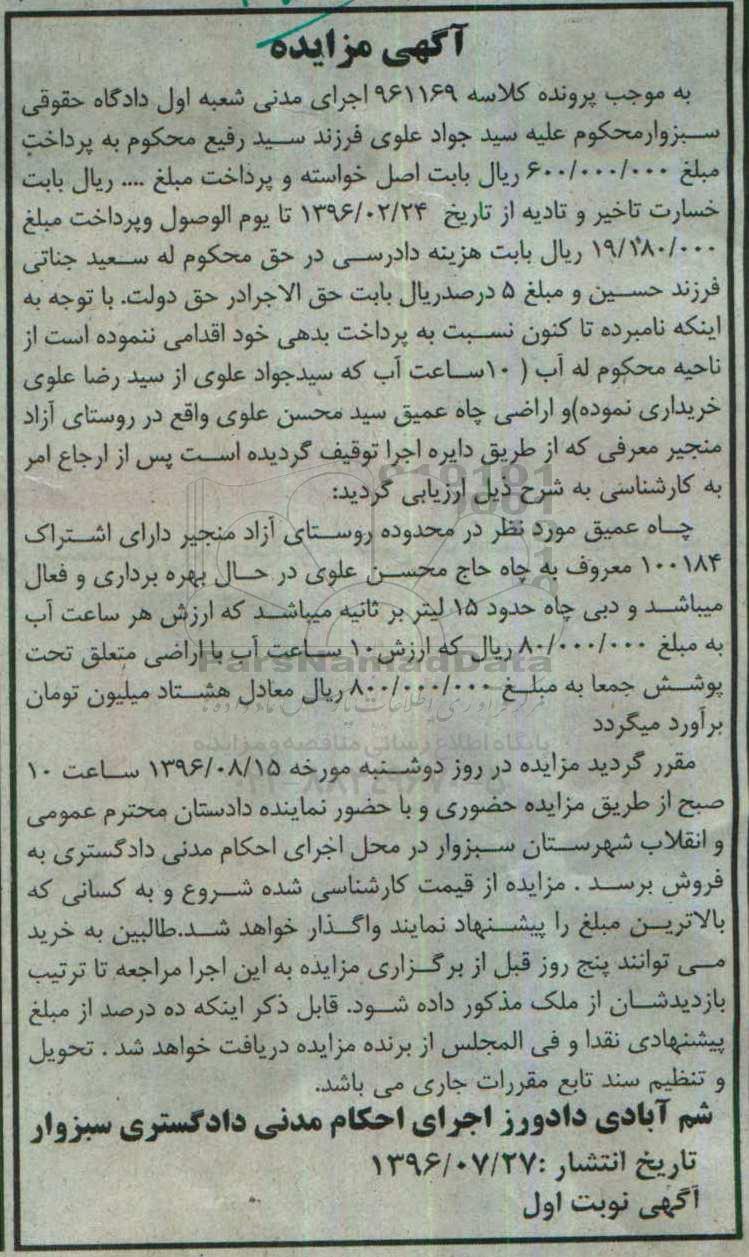 آگهی مزایده
به موجب پرونده کلاسه ۹۶۱۱۶۹ اجرای مدنی شعبه اول دادگاه حقوقی
سبزوارمحکوم علیه سید جواد علوی فرزند سید رفیع محکوم به پرداخت
مبلغ ۶۰۰/۰۰۰/۰۰۰ ریال بابت اصل خواسته و پرداخت مبلغ .... ریال بابت
خسارت تاخیر و تادیه از تاریخ ۱۳۹۶/۰۲/۲۴ تا یوم الوصول وپرداخت مبلغ
۱۹/۱۸۰/۰۰۰ ریال بابت هزینه دادرسی در حق محکوم له سعید جناتی
فرزند حسین و مبلغ ۵ درصدریال بابت حق الاجرادر حق دولت. با توجه به
اینکه نامبرده تا کنون نسبت به پرداخت بدهی خود اقدامی ننموده است از
ناحیه محکوم له آب ( ۱۰ساعت آب که سیدجواد علوی از سید رضا علوی
خریداری نموده)و اراضی چاه عمیق سید محسن علوی واقع در روستای آزاد
منجیر معرفی که از طریق دایره اجرا توقیف گردیده است پس از ارجاع امر
به کارشناسی به شرح ذیل ارزیابی گردید:
چاه عمیق مورد نظر در محدوده روستای آزاد منجیر دارای اشتراک
۱۰۰۱۸۴ معروف به چاه حاج محسن علوی در حال بهره برداری و فعال
میباشد و دبی چاه حدود ۱۵ لیتر بر ثانیه میباشد که ارزش هر ساعت آب
به مبلغ ۸۰/۰۰۰/۰۰۰ ریال که ارزش۱۰ ساعت آب با اراضی متعلق تحت
پوشش جمعا به مبلغ ۸۰۰/۰۰۰/۰۰۰ ریال معادل هشتاد میلیون تومان
برآورد میگردد
مقرر گردید مزایده در روز دوشنبه مورخه ۱۳۹۶/۰۸/۱۵ ساعت ۱۰
صبح از طریق مزایده حضوری و با حضور نماینده دادستان محترم عمومی
و انقلاب شهرستان سبزوار در محل اجرای احکام مدنی دادگستری به
فروش برسد . مزایده از قیمت کارشناسی شده شروع و به کسانی که
بالاترین مبلغ را پیشنهاد نمایند واگذار خواهد شد.طالبین به خرید
می توانند پنج روز قبل از برگزاری مزایده به این اجرا مراجعه تا ترتیب
بازدیدشان از ملک مذکور داده شود. قابل ذکر اینکه ده درصد از مبلغ
پیشنهادی نقدا و فی المجلس از برنده مزایده دریافت خواهد شد . تحویل
و تنظیم سند تابع مقررات جاری می باشد.
شم آبادی دادورز اجرای احکام مدنی دادگستری سبزوار
تاریخ انتشار :۱۳۹۶/۰۷/۲۷
آگهی نوبت اول
ParsNamadData
پایگاه اطلاع رسانی مناقصه و مزایده